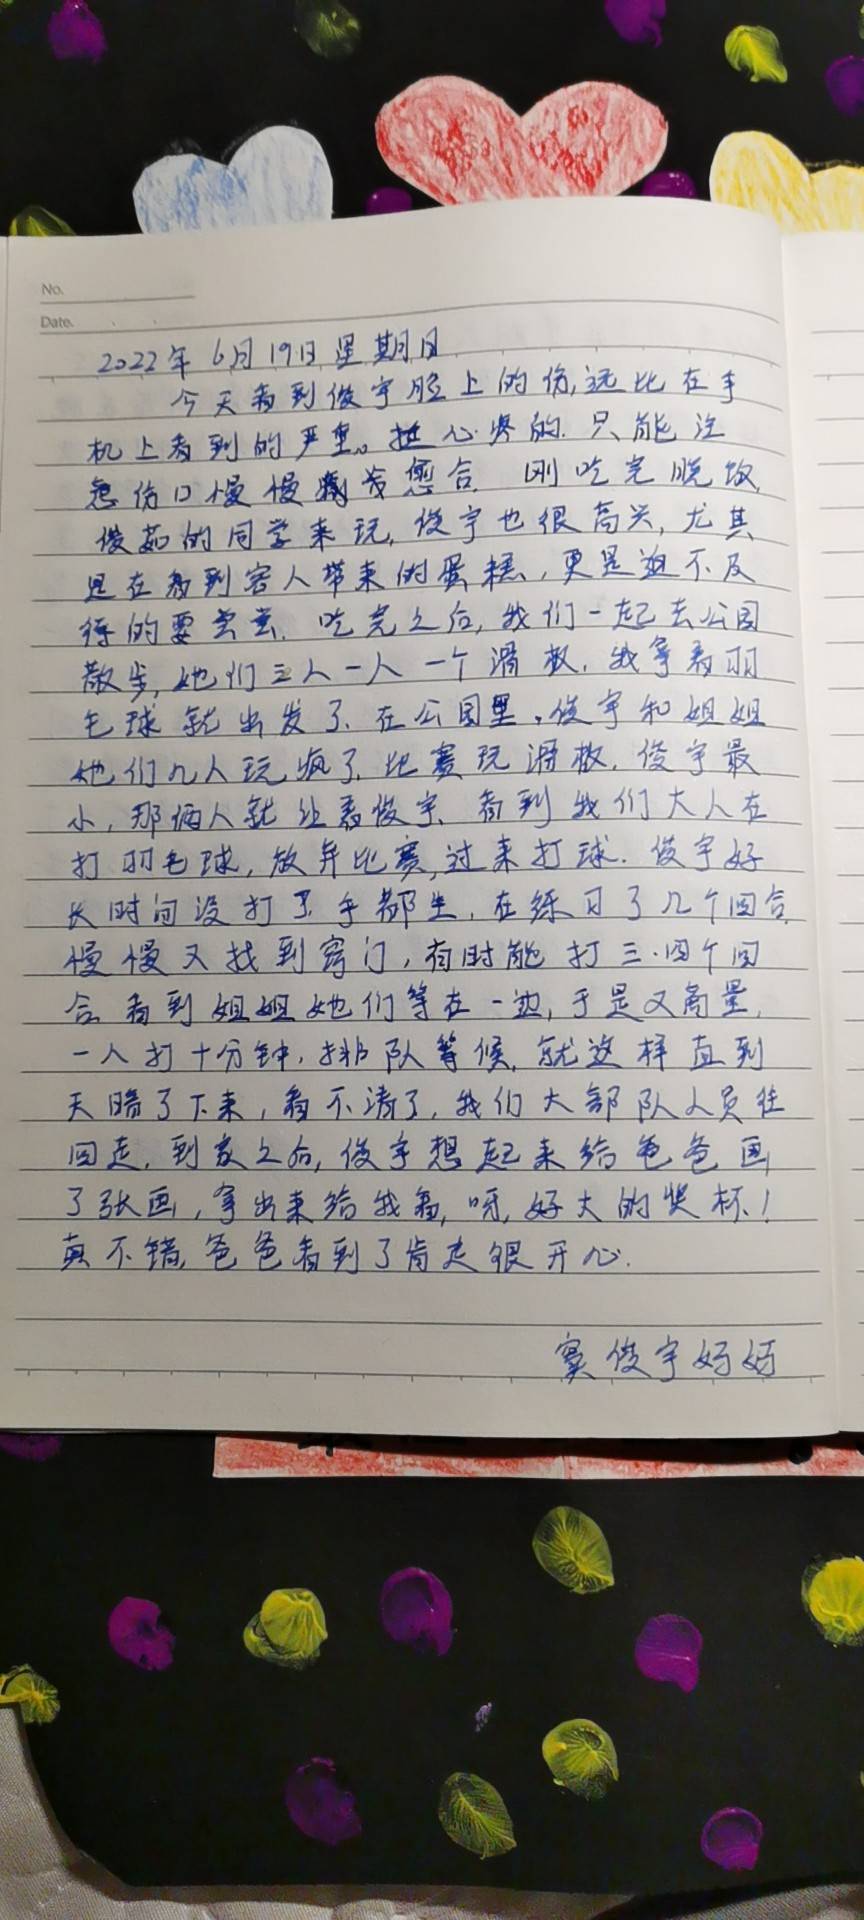 No.
Date.
2022年6月19日星期日
今天看到俊宇脸上的伤,远比在手
机上看到的严重。挺心疼的.只能注
意伤口慢慢 愈合.刚吃完晚饭,
俊茹的同学来玩,俊宇也很高兴,尤其
是在看到客人带来的蛋糕,更是迫不及
待的要尝尝.吃完之后,我们一起去公园
散步,她们三人一人一个滑板,我拿着羽
毛球就出发了.在公园里,俊宇和姐姐
她们几人玩疯了.比赛玩滑板,俊宇最
小,那俩人就让着俊宇.看到我们大人在
打羽毛球,放弃比赛,过来打球.俊宇好
长时间没打了.手都生,在练习了几个回合
慢慢又找到窍门,有时能打三.四个回
合.看到姐姐她们等在一边,于是又商量,
一人打十分钟,排队等候,就这样直到
天暗了下来,看不清了,我们大部队人员往
回走.到家之后,俊宇想起来给爸爸画
了张画,拿出来给我看,呀,好大的奖杯!
真不错,爸爸看到了肯定很开心.
窦俊宇妈妈